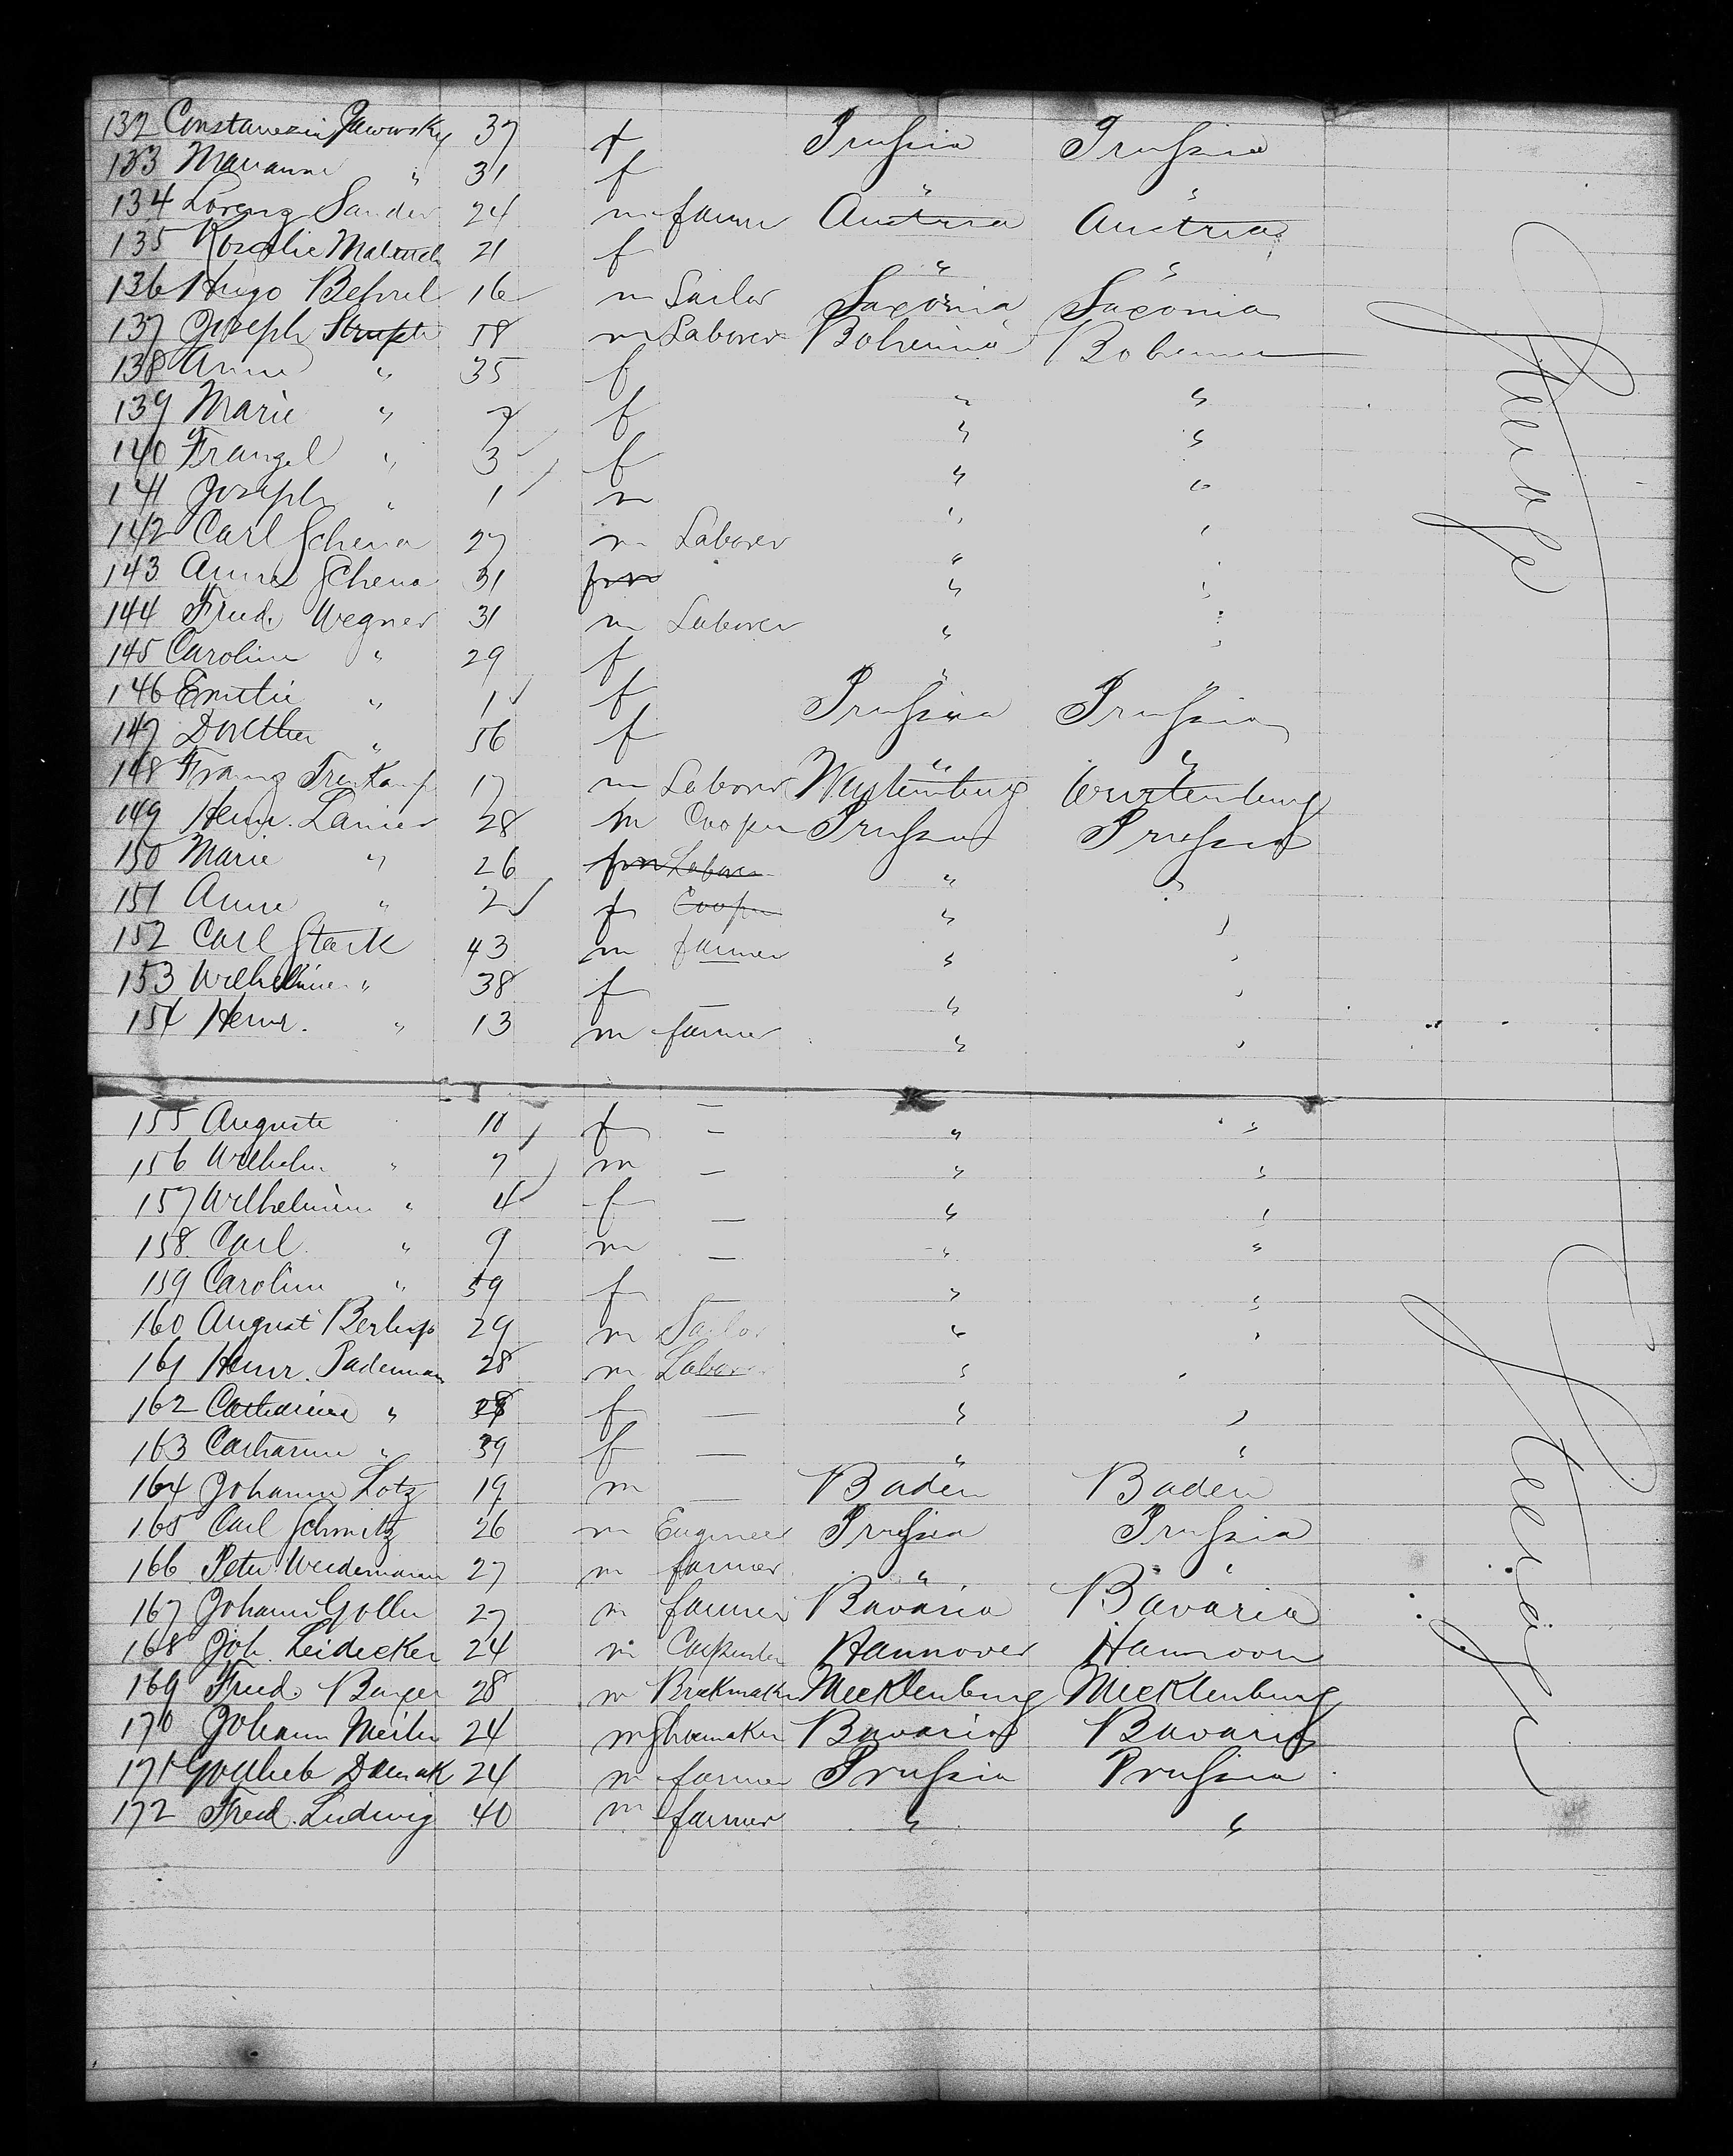 132 Constanezia Jaworsky 37 f Prussia Prussia
133 Marianne " 31 f " "
134 Lorenz Sander 24 m farmer Austria Austria
135 Rosalie 21 f " "
136 Hugo 16 m Sailor Saxonia Saxonia
137 Joseph 58 m Laborer Bohemia Bohemia
138 Anne " 35 f " "
139 Marie " 7 f " "
140 Franzel " 3 f " "
141 Joseph " 1 m " "
142 Carl Schena 27 m Laborer " "
143 Anna Schena 31 f " "
144 Fried. Wegner 31 m Laborer " "
145 Caroline " 29 f " "
146 Emilie " 1 f Prussia Prussia
147 Dorethea " 56 f " "
148 Franz Trenkamp 17 m Laborer Wurtemburg Wurtenburg
149 Heinr. Lanier 28 m Cooper Prussia Prussia
150 Marie " 26 f Laborer " "
151 Anne " 2 f Cooper " "
152 Carl Stark 43 m farmer " "
153 Wilhelmine " 38 f "
154 Heinr. " 13 m farmer " "
155 Auguste 10 f — " "
156 Wilhelm " 7 m — " "
157 Wilhelmine " 4 f — " "
158 Carl " 9 m — " "
159 Caroline " 59 f " "
160 August 29 m Tailor " "
161 Heinr. Pademann 28 m Labor " "
162 Catharina " f — " "
163 Catharine " 39 f — " "
164 Johann Lotz 19 m — Baden Baden
165 Carl Schmitz 26 m Engineer Prussia Prussia
166 Peter Weidemann 27 m farmer " "
167 Johann Goller 27 m farmer Bavaria Bavaria
168 Joh. Leidecker 24 m Carpenter Hannover Hannover
169 Fried. 28 m Brickmaker Mecklenburg Mecklenburg
170 Johann Meiler 24 m Shoemaker Bavaria Bavaria
171 Gottlieb 24 m farmer Prussia Prussia
172 Fried. Ludwig 40 m farmer " "
Steerage
Steerage